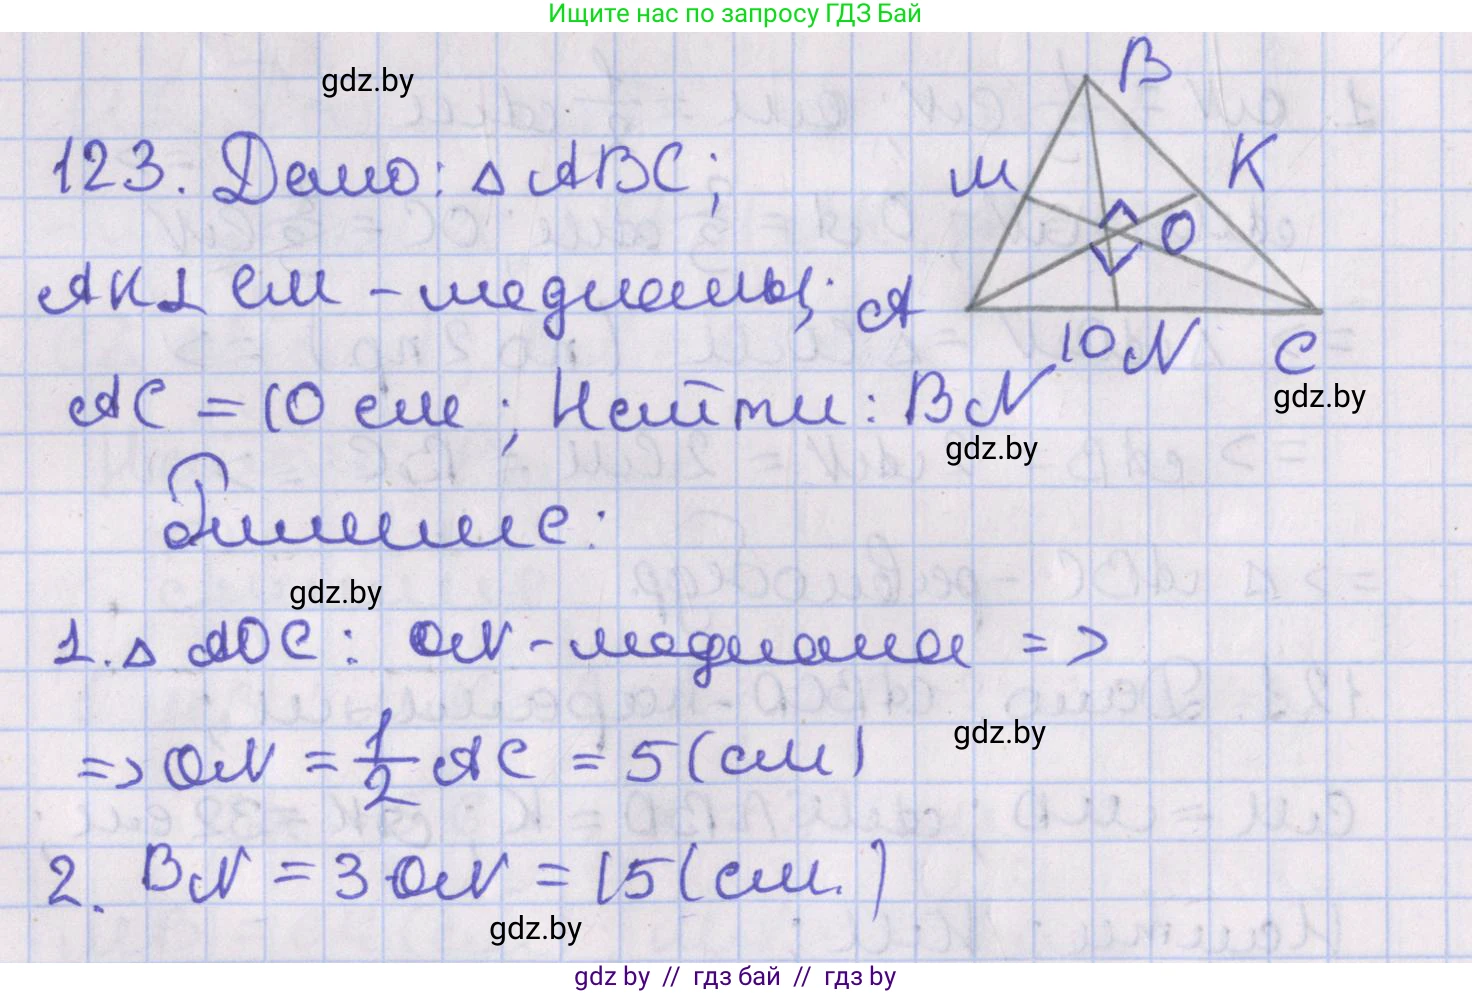 Ищите нас по запросу ГДЗ Бай
gdz.by
B
123. Дано: △ ABC;
M
K
O
AK ⊥ CM - медианы;
A
10 N
C
gdz.by
AC = 10 см; Найти: BN
gdz.by
Решение:
gdz.by
1. △ AOC: ON - медиана =>
gdz.by
=> ON = 1/2 AC = 5 (см)
2. BN = 3 ON = 15 (см.)
gdz.by
gdz by // гдз бай // гдз by